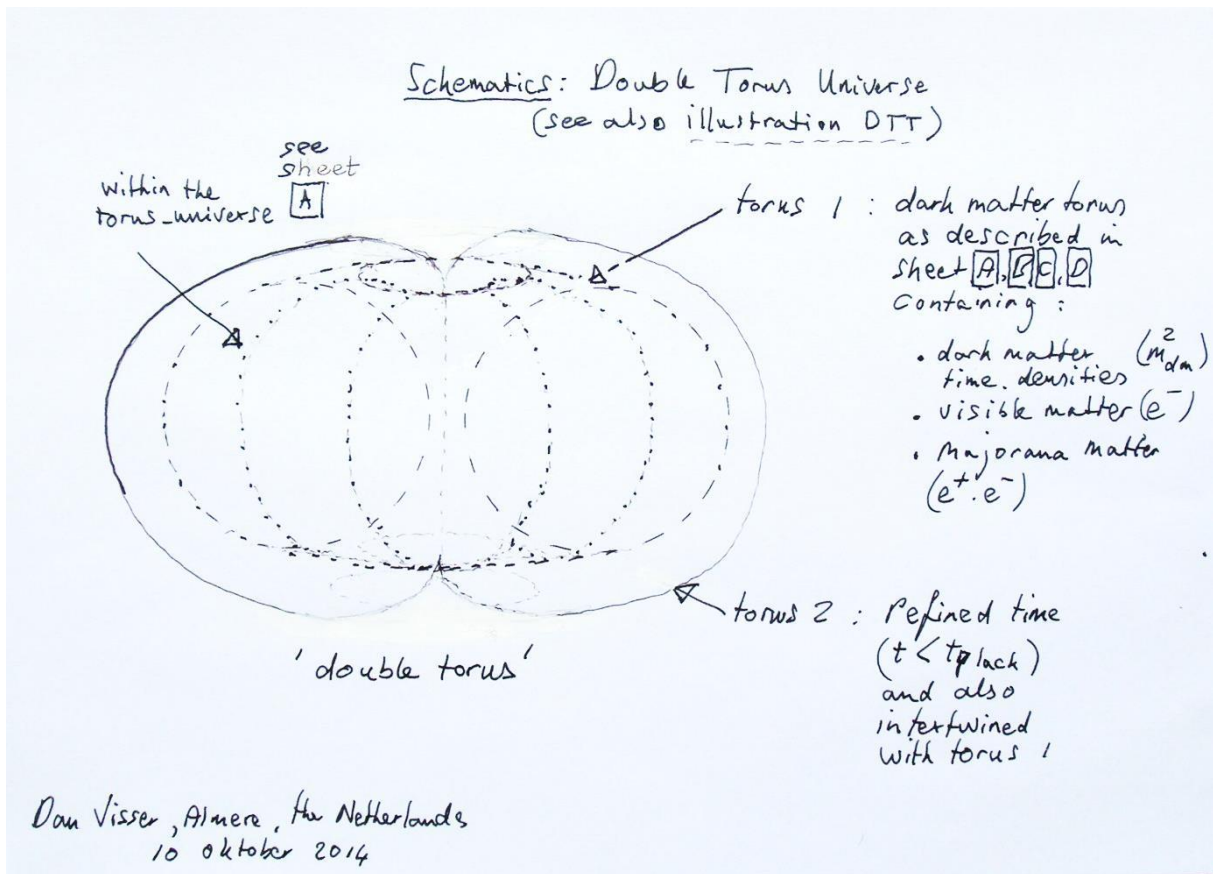 Schematics: Double Torus Universe
(see also illustration DTT)
see
sheet
A
within the
torus_universe
torus 1 : dark matter torus
as described in
sheet A, B, C, D
containing :
• dark matter (m²dm)
time.densities
• visible matter (e⁻)
• Majorana matter
(e⁺.e⁻)
torus 2 : refined time
(t < tplack)
and also
intertwined
with torus 1
'double torus'
Dan Visser, Almere, the Netherlands
10 oktober 2014